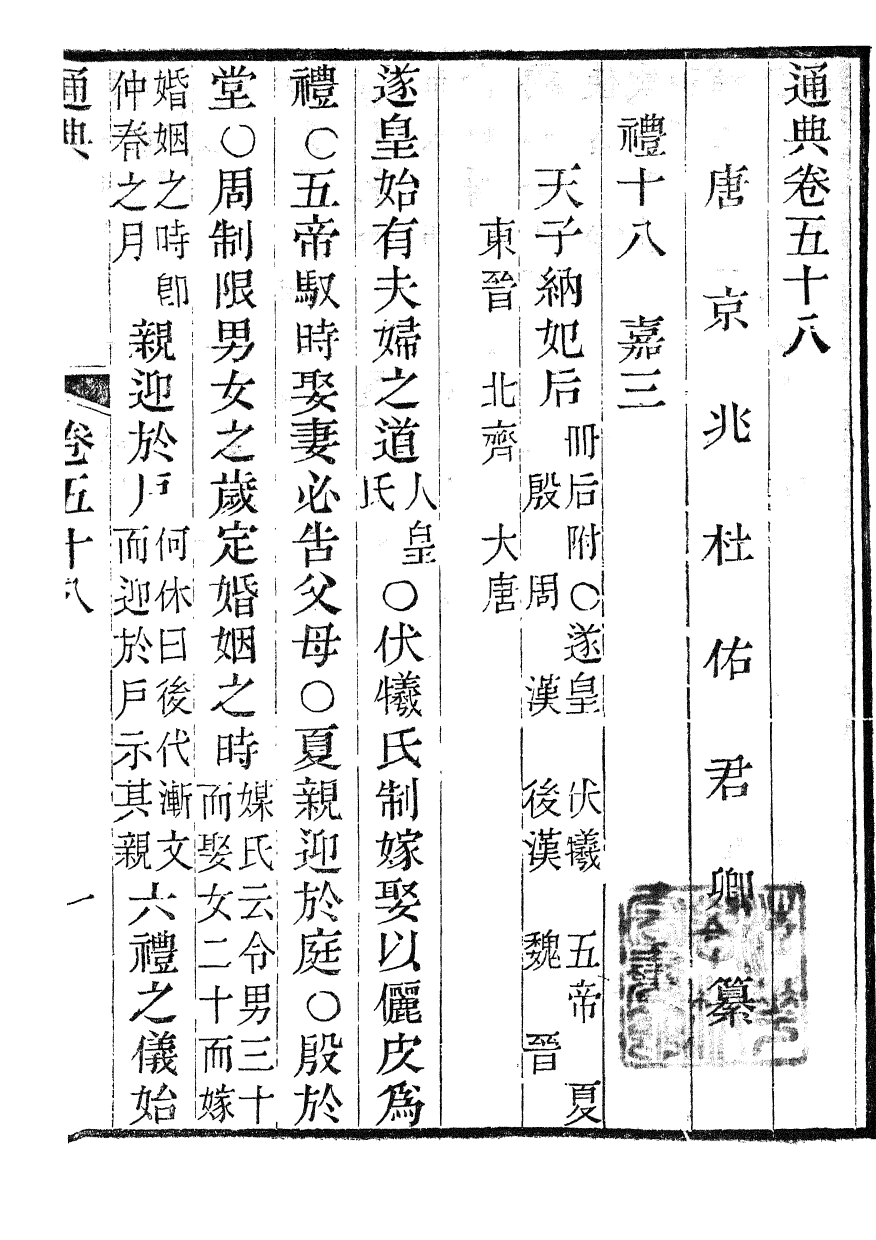 通典卷五十八
唐京兆杜佑君卿纂
禮十八　嘉三
天子納妃后　冊后附○遂皇　伏犧　五帝　夏
殷　周　漢　後漢　魏　晉
東晉　北齊　大唐
遂皇始有夫婦之道人皇氏○伏犧氏制嫁娶以儷皮爲
禮○五帝馭時娶妻必告父母○夏親迎於庭○殷於
堂○周制限男女之歲定婚姻之時媒氏云令男三十而娶女二十而嫁
婚姻之時卽仲春之月親迎於戶何休曰後代漸文而迎於戶示其親六禮之儀始
通典　卷五十八　一